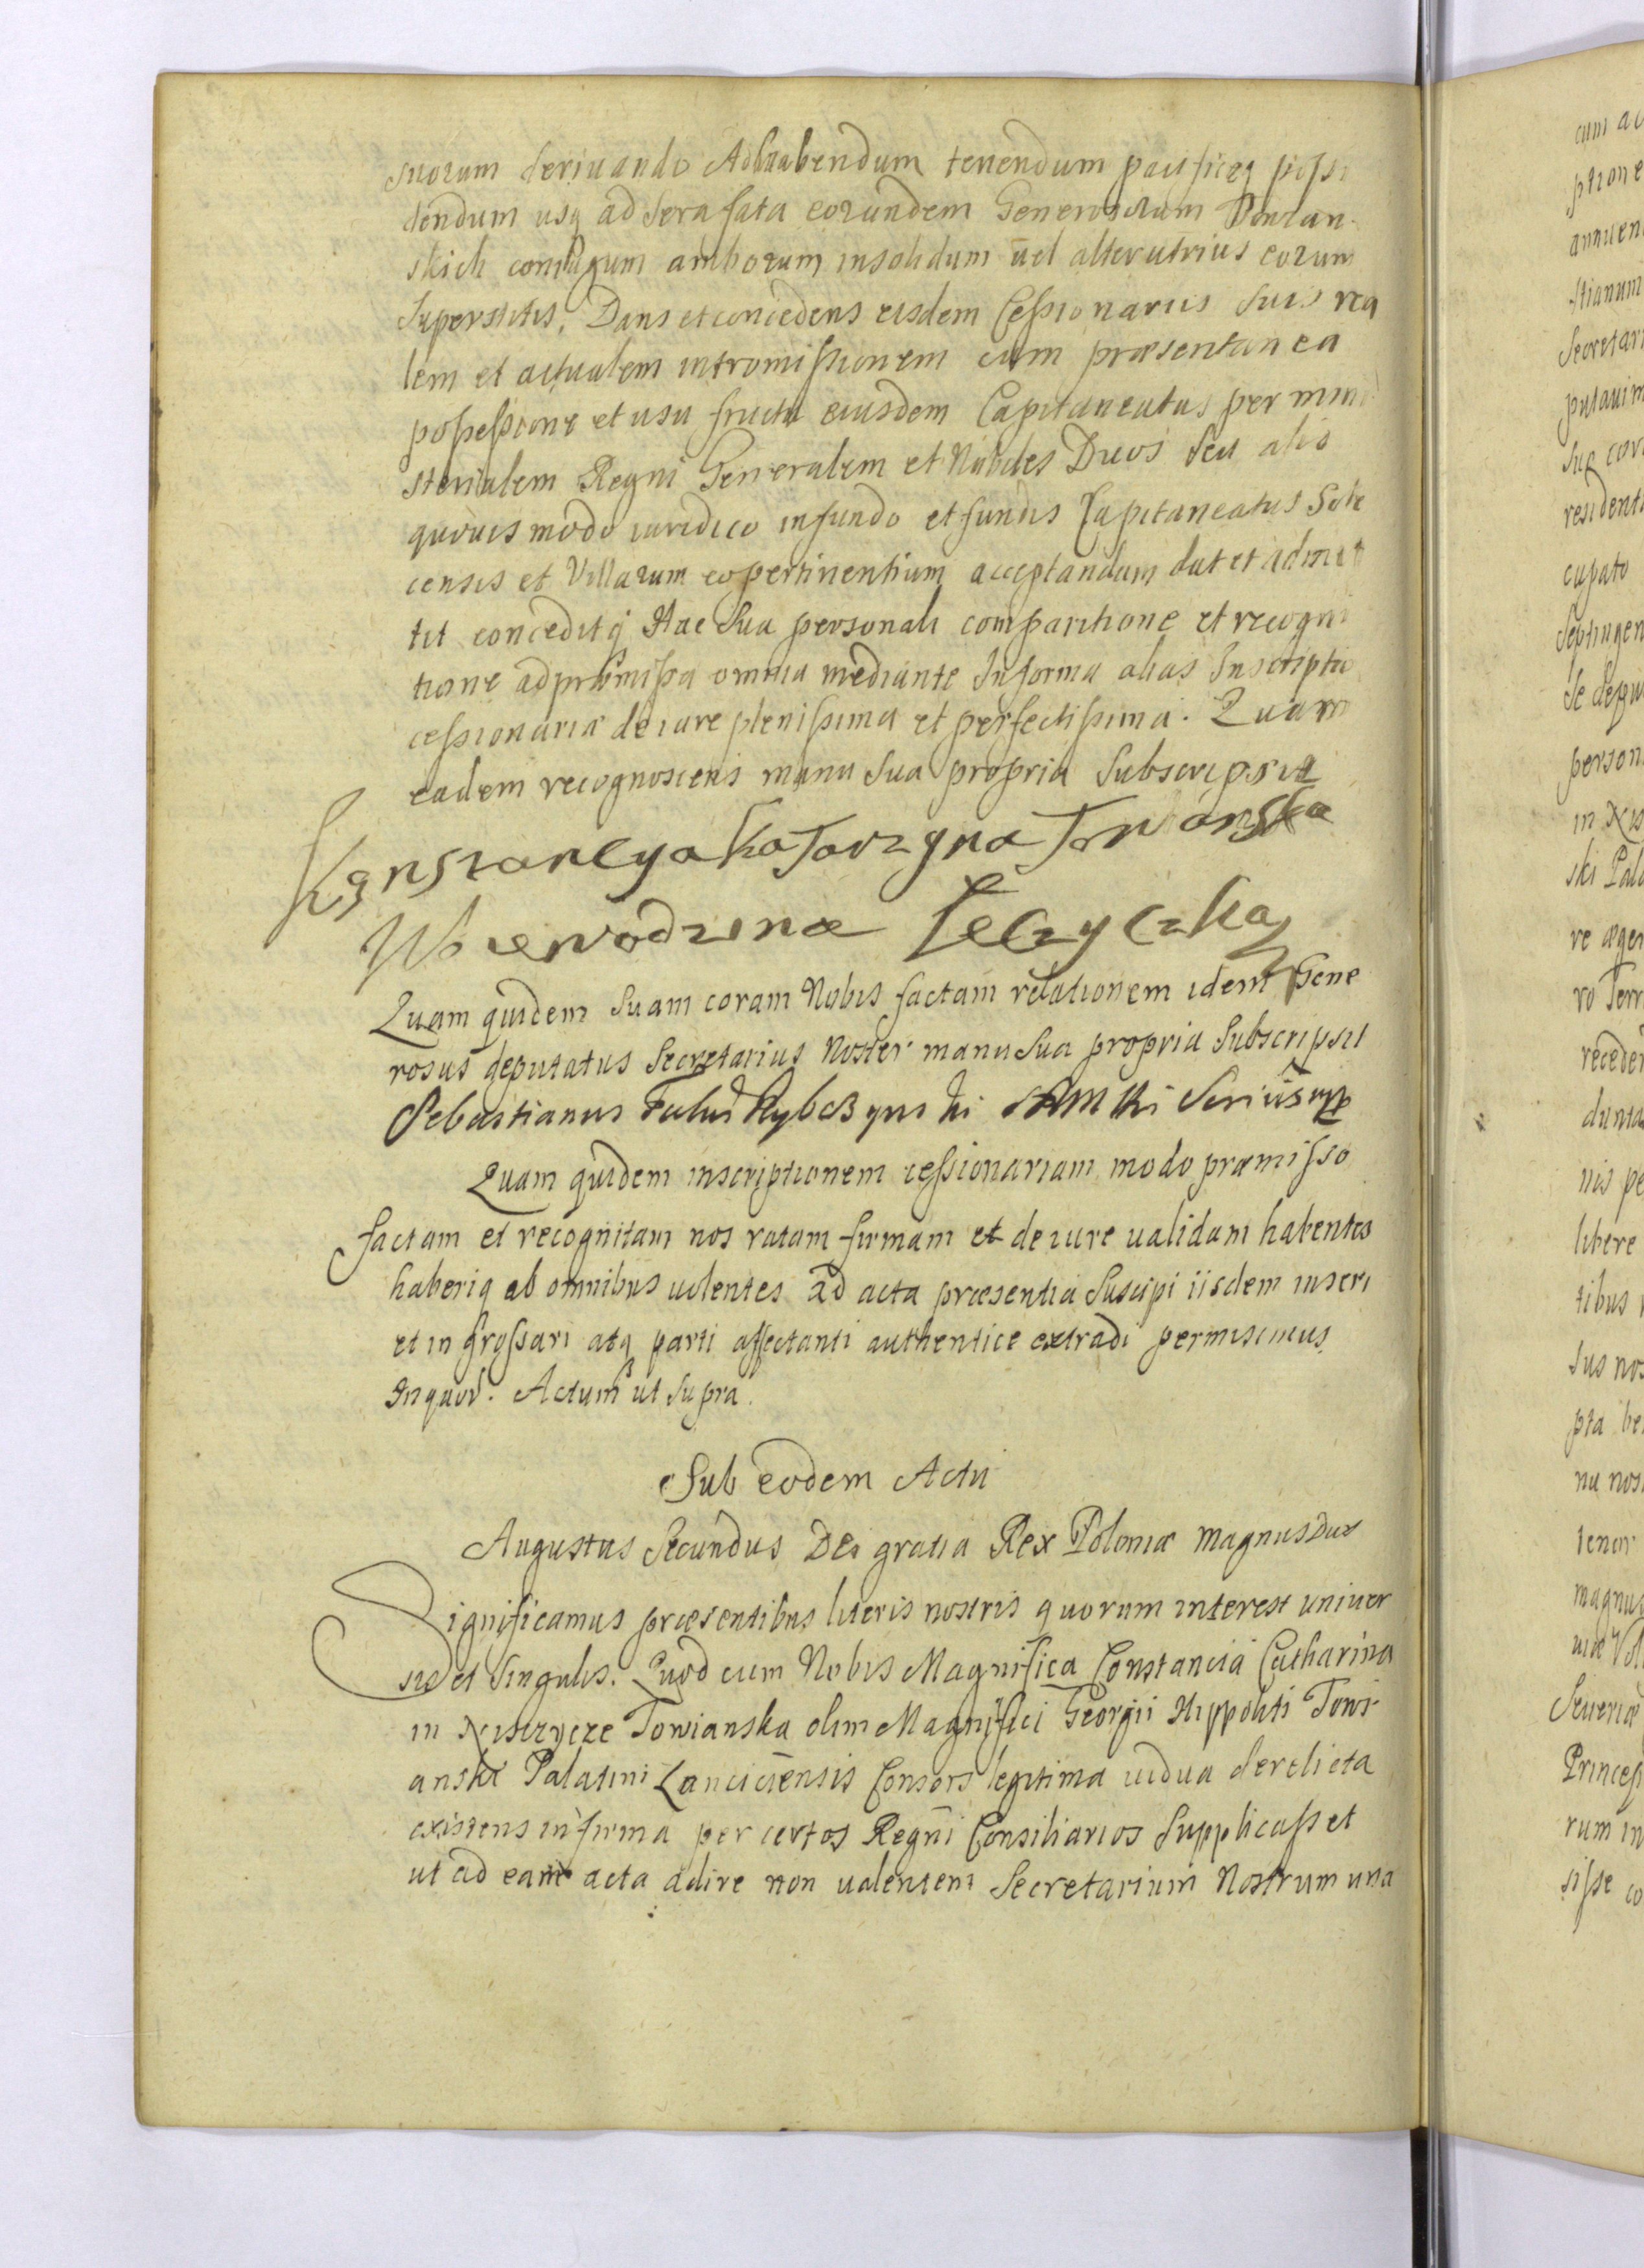 suorum deriuando Ad habendum tenendum pacificeq possi
dendum usq ad sera fata eorundem Generosorum
skich coniugum amborum insolidum uel alterutrius eorum
Superstitis. Dans et concedens eisdem Cessionariis suis rea
lem et actualem intromissionem cum præsentanea
possessione et usu fructu eiusdem Capitaneatus per mini
sterialem Regni Generalem et Nobiles Duos seu alio
quouis modo iuridico in fundo et fundis Capitaneatus
censis et Villarum eo pertinentium acceptandam dat et admit
tit conceditq Hac Sua personali comparitione et recogni
tione ad præmissa omnia mediante In forma alias Inscriptio
cessionaria de iure plenissima et perfectissima. Quam
eadem recognoscens manu sua propria Subscripsit
Konstancya Katarzyna Towianska
Woiewodzina Łęczycka
Quam quidem Suam coram Nobis factam relationem idem Gene
rosus deputatus Secretarius Noster manu Sua propria Subscripsit
Sebastianus Rybczynski mp
Quam quidem inscriptionem cessionariam modo præmisso
factam et recognitam nos ratam firmam et de iure ualidam habentes
haberiq ab omnibus uolentes ad acta præsentia Suscipi iisdem inseri
et in grossari atq parti affectanti authentice extradi permisimus
In quor. Actum ut Supra.
Sub eodem Actu
Augustus Secundus Dei gratia Rex Poloniæ Magnus Dux
Significamus præsentibus literis nostris quorum interest uniuer
sis et Singulis. Quod cum Nobis Magnifica Constancia Catharina
in Niszczyce Towianska olim Magnifici Georgii Hippoliti Towi
anski Palatini Lanciciensis Consors legitima uidua derelicta
existens infirma per certos Regni Consiliarios Supplicasset
ut ad eam acta adire non ualentem Secretarium Nostrum una